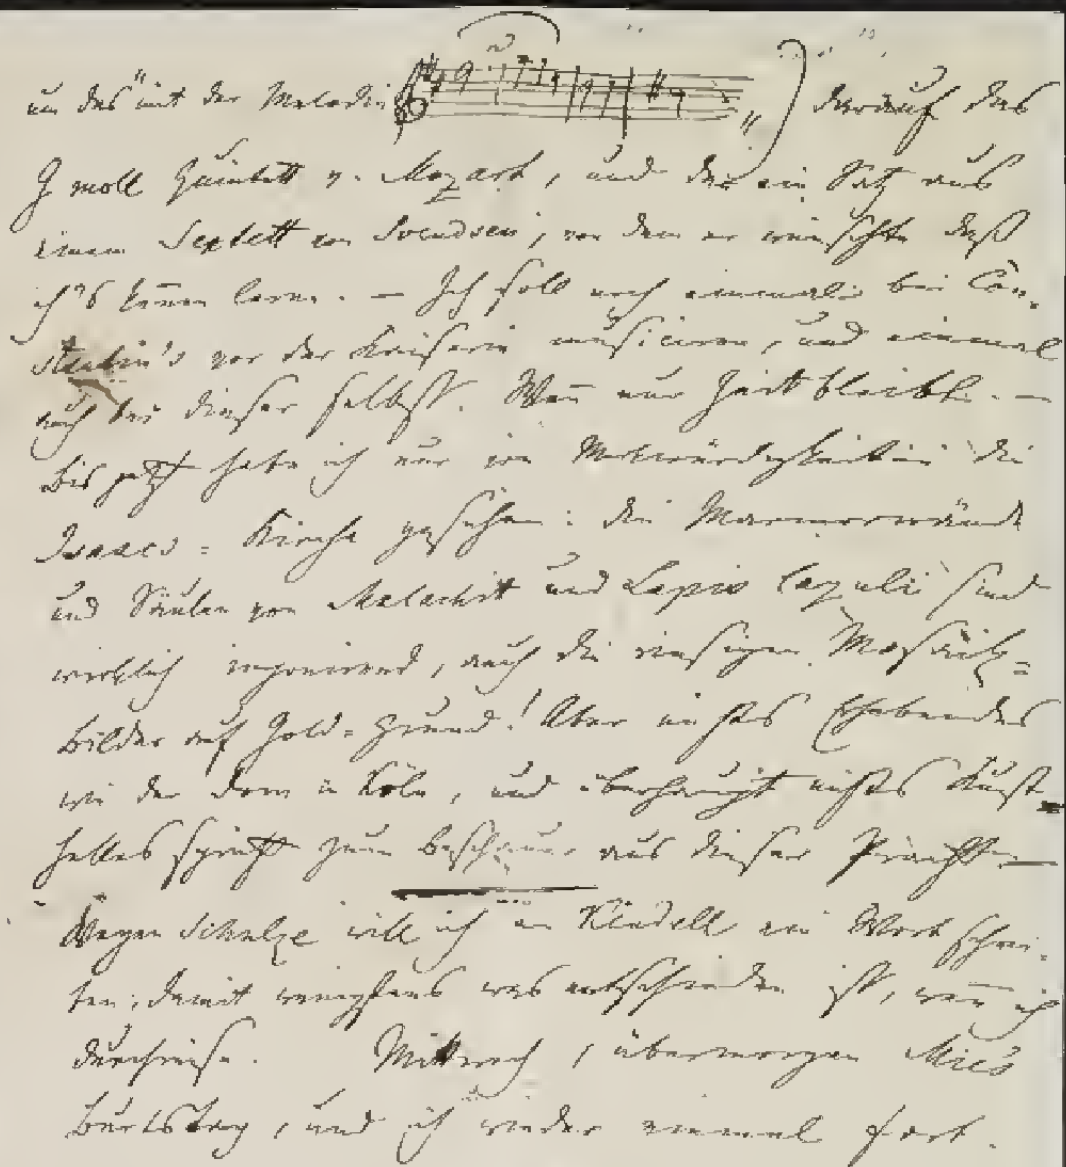 um das" mit der Melodie " ) darauf das
G moll Quintett v. Mozart, und dan ein Satz aus
einem Sextett von Svendsen, von dem er wünschte daß
ich's kennen lerne. – Ich soll noch einmal bei Con-
stantin's vor der Kaiserin musiciren, und einmal
auch bei dieser selbst. Wen̄ nur Zeit bleibt. –
Bis jetzt habe ich nur von Merkwürdigkeiten die
Isaacs=Kirche gesehen: die Marmorwände
und Säulen von Malachit und Lapis lazuli sind
wirklich imponirend, auch die riesigen Mosaik=
bilder auf Gold=Grund! Aber nichts Erhebendes
wie der Dom in Köln, und überhaupt nichts Künst-
helles spricht zum Beschauer aus dieser Pracht –
Wegen Schulze will ich an Kündell ein Wort schrei-
ben, damit wenigstens was entschieden ist, wen̄ ich
durchreise. Mittwoch, übermorgen Mie's
Burtstag, und ich wieder einmal fort.